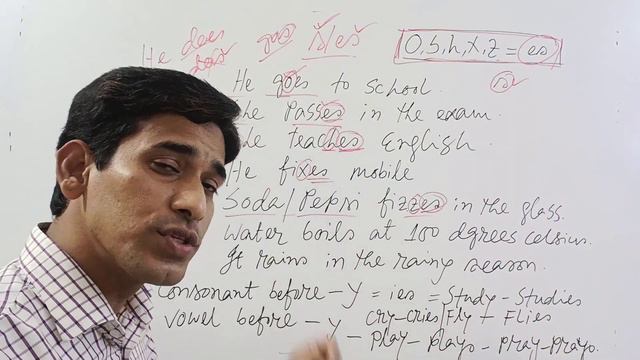 He does goes s/es O,S,h,x,z = es
does
He goes to School.
He Passes in the exam.
He teaches English.
He fixes mobile
Soda/Pepsi fizzes in the glass.
Water boils at 100 dgrees celsius.
It rains in the rainy season.
Consonant before - y = ies = Study - Studies
Cry-Cries/Fly - Flies
Vowel before - y - Play - Plays - Pray - Prays.